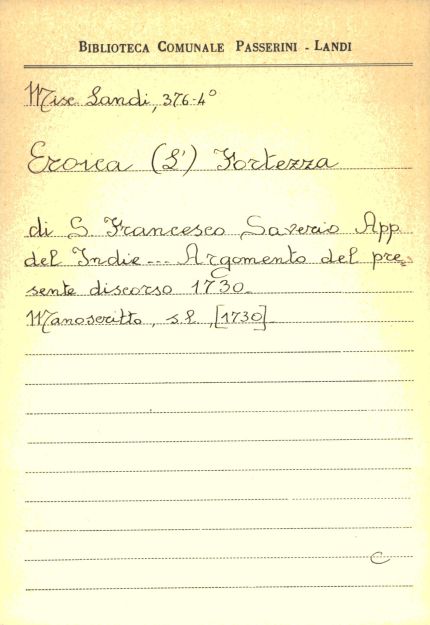 BIBLIOTECA COMUNALE PASSERINI - LANDI
Misc. Landi, 376-4°
Eroica (L') Fortezza
di S. Francesco Saverio App.
del Indie --- Argomento del pre=
sente discorso 1730.
Manoscritto, s.l., [1730].
C